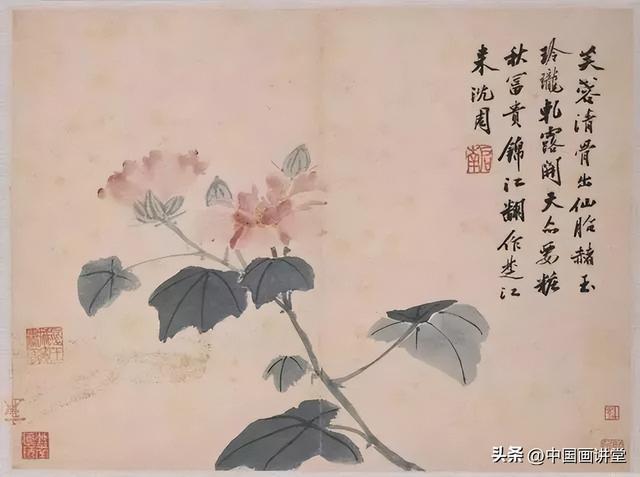 芙蓉清骨出仙胎赭玉
玲瓏軋露開天亦要粧
秋富貴錦江翻作楚江
来沈周
啟南
头条 @中国画讲堂